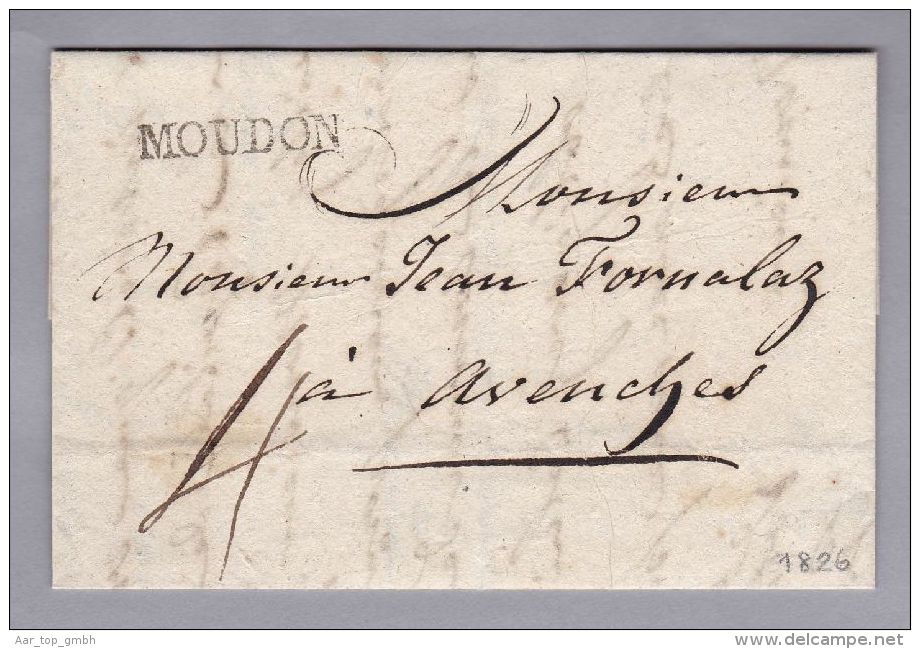 MOUDON
Monsieur
Monsieur Jean Fornalaz
à Avenches
4
1826
Aar_top_gmbh
www.delcampe.net